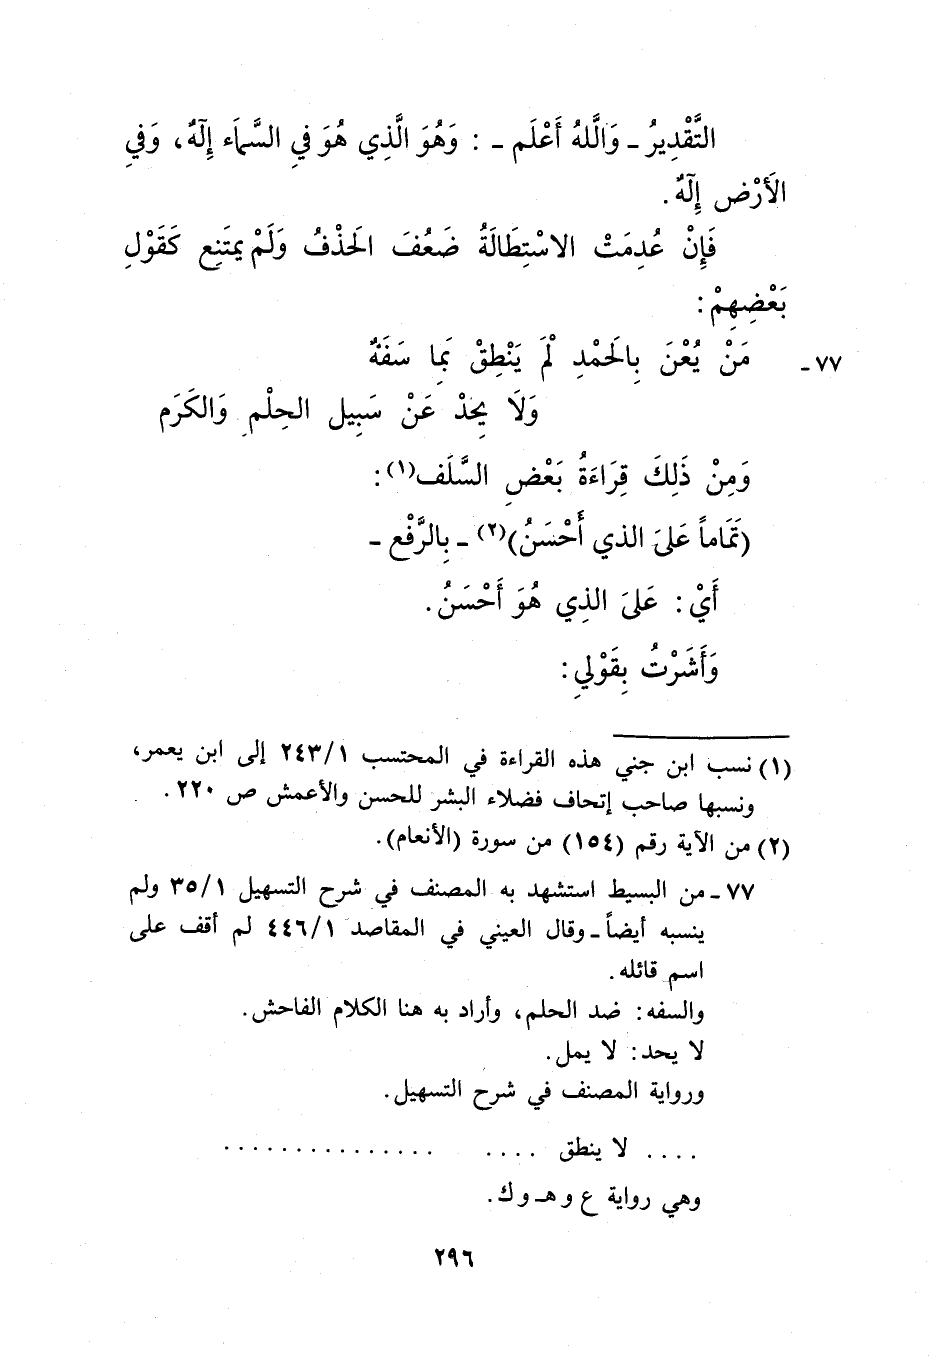 التَّقْدِيرُ ـ وَاللهُ أَعْلَم ـ : وَهُوَ الَّذِي هُوَ فِي السَّمَاءِ إِلَهٌ، وَفِي
الأَرْض إِلَهٌ.
فَإِنْ عُدِمَتْ الاسْتِطَالَةُ ضَعُفَ الحَذْفُ وَلَمْ يمتَنِع كَقَوْلِ
بَعْضِهِمْ :
٧٧ ـ مَنْ يُعْنَ بِالَحمْدِ لَمْ يَنْطِقْ بَمِا سَفَهٌ
وَلَا يحِدْ عَنْ سَبِيل الحِلْمِ وَالكَرَم
وَمِنْ ذَلِكَ قِرَاءَةُ بَعْضِ السَّلَف(١) :
(تَمَاماً عَلَىَ الذي أَحْسَنُ)(٢) ـ بِالرَّفْع ـ
أَيْ : عَلىَ الذِي هُوَ أَحْسَنُ.
وَأَشَرْتُ بِقَوْلِي :
(١) نسب ابن جني هذه القراءة في المحتسب ٢٤٣/١ إلى ابن يعمر،
ونسبها صاحب إتحاف فضلاء البشر للحسن والأعمش ص ٢٢٠ .
(٢) من الآية رقم (١٥٤) من سورة (الأنعام).
٧٧ ـ من البسيط استشهد به المصنف في شرح التسهيل ٣٥/١ ولم
ينسبه أيضاً ـ وقال العيني في المقاصد ٤٤٦/١ لم أقف على
اسم قائله .
والسفه : ضد الحلم، وأراد به هنا الكلام الفاحش.
لا يحد : لا يمل .
ورواية المصنف في شرح التسهيل .
.... لا ينطق .... ...............
وهي رواية ع و هـ و ك .
٢٩٦